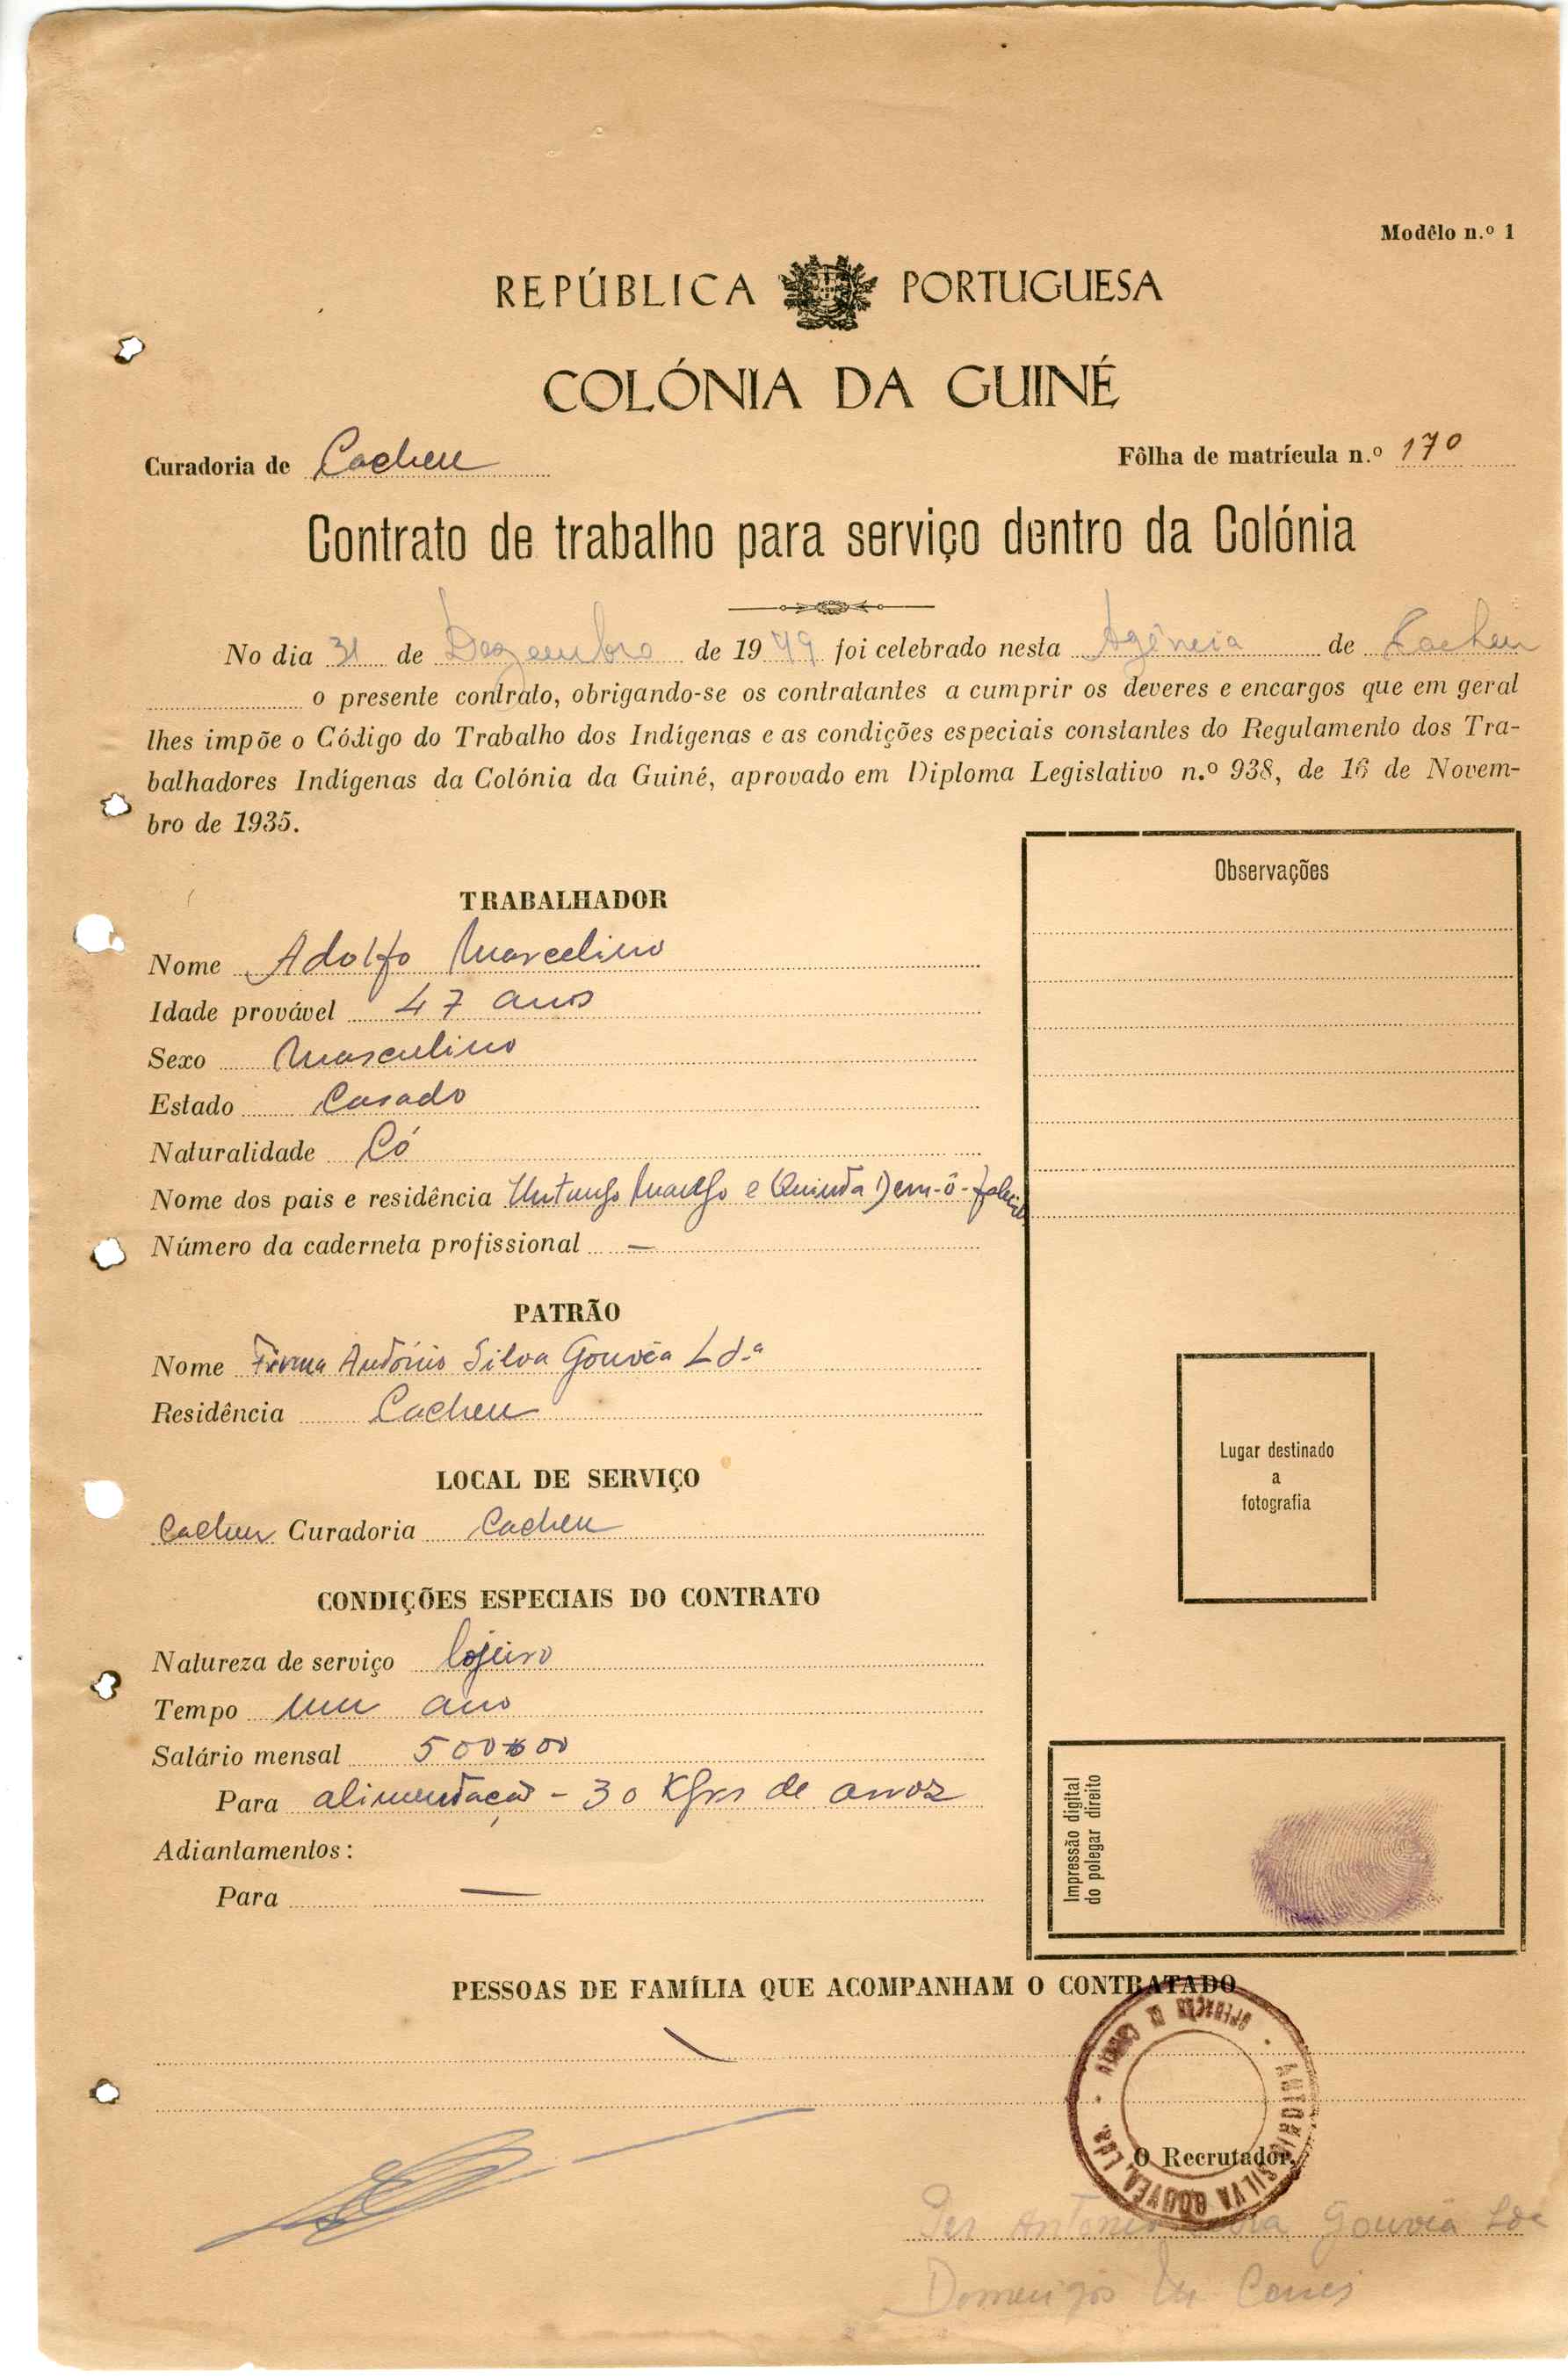 Modêlo n.º 1
REPÚBLICA PORTUGUESA
COLÓNIA DA GUINÉ
Curadoria de Cacheu Fôlha de matrícula n.º 170
Contrato de trabalho para serviço dentro da Colónia
No dia 31 de Dezembro de 1949 foi celebrado nesta Agência de Cacheu
o presente contrato, obrigando-se os contratantes a cumprir os deveres e encargos que em geral
lhes impõe o Código do Trabalho dos Indígenas e as condições especiais constantes do Regulamento dos Tra-
balhadores Indígenas da Colónia da Guiné, aprovado em Diploma Legislativo n.º 938, de 16 de Novem-
bro de 1935.
Observações
TRABALHADOR
Nome Adolfo Marcelino
Idade provável 47 anos
Sexo Masculino
Estado Casado
Naturalidade Có
Nome dos pais e residência e Quinta
Número da caderneta profissional —
PATRÃO
Nome Firma António Silva Gouvêa Ld.ª
Residência Cacheu
LOCAL DE SERVIÇO
Cacheu Curadoria Cacheu
Lugar destinado
a
fotografia
CONDIÇÕES ESPECIAIS DO CONTRATO
Natureza de serviço lojeiro
Tempo um ano
Salário mensal 500$00
Para alimentação - 30 Kgrs de arroz
Adiantamentos:
Para —
Impressão digital
do polegar direito
PESSOAS DE FAMÍLIA QUE ACOMPANHAM O CONTRATADO
ANTONIO SILVA GOUVÊA, LDA. OPERAÇÃO DE CACHEU
O Recrutador,
Per António Silva Gouvêa Lda
Domingos